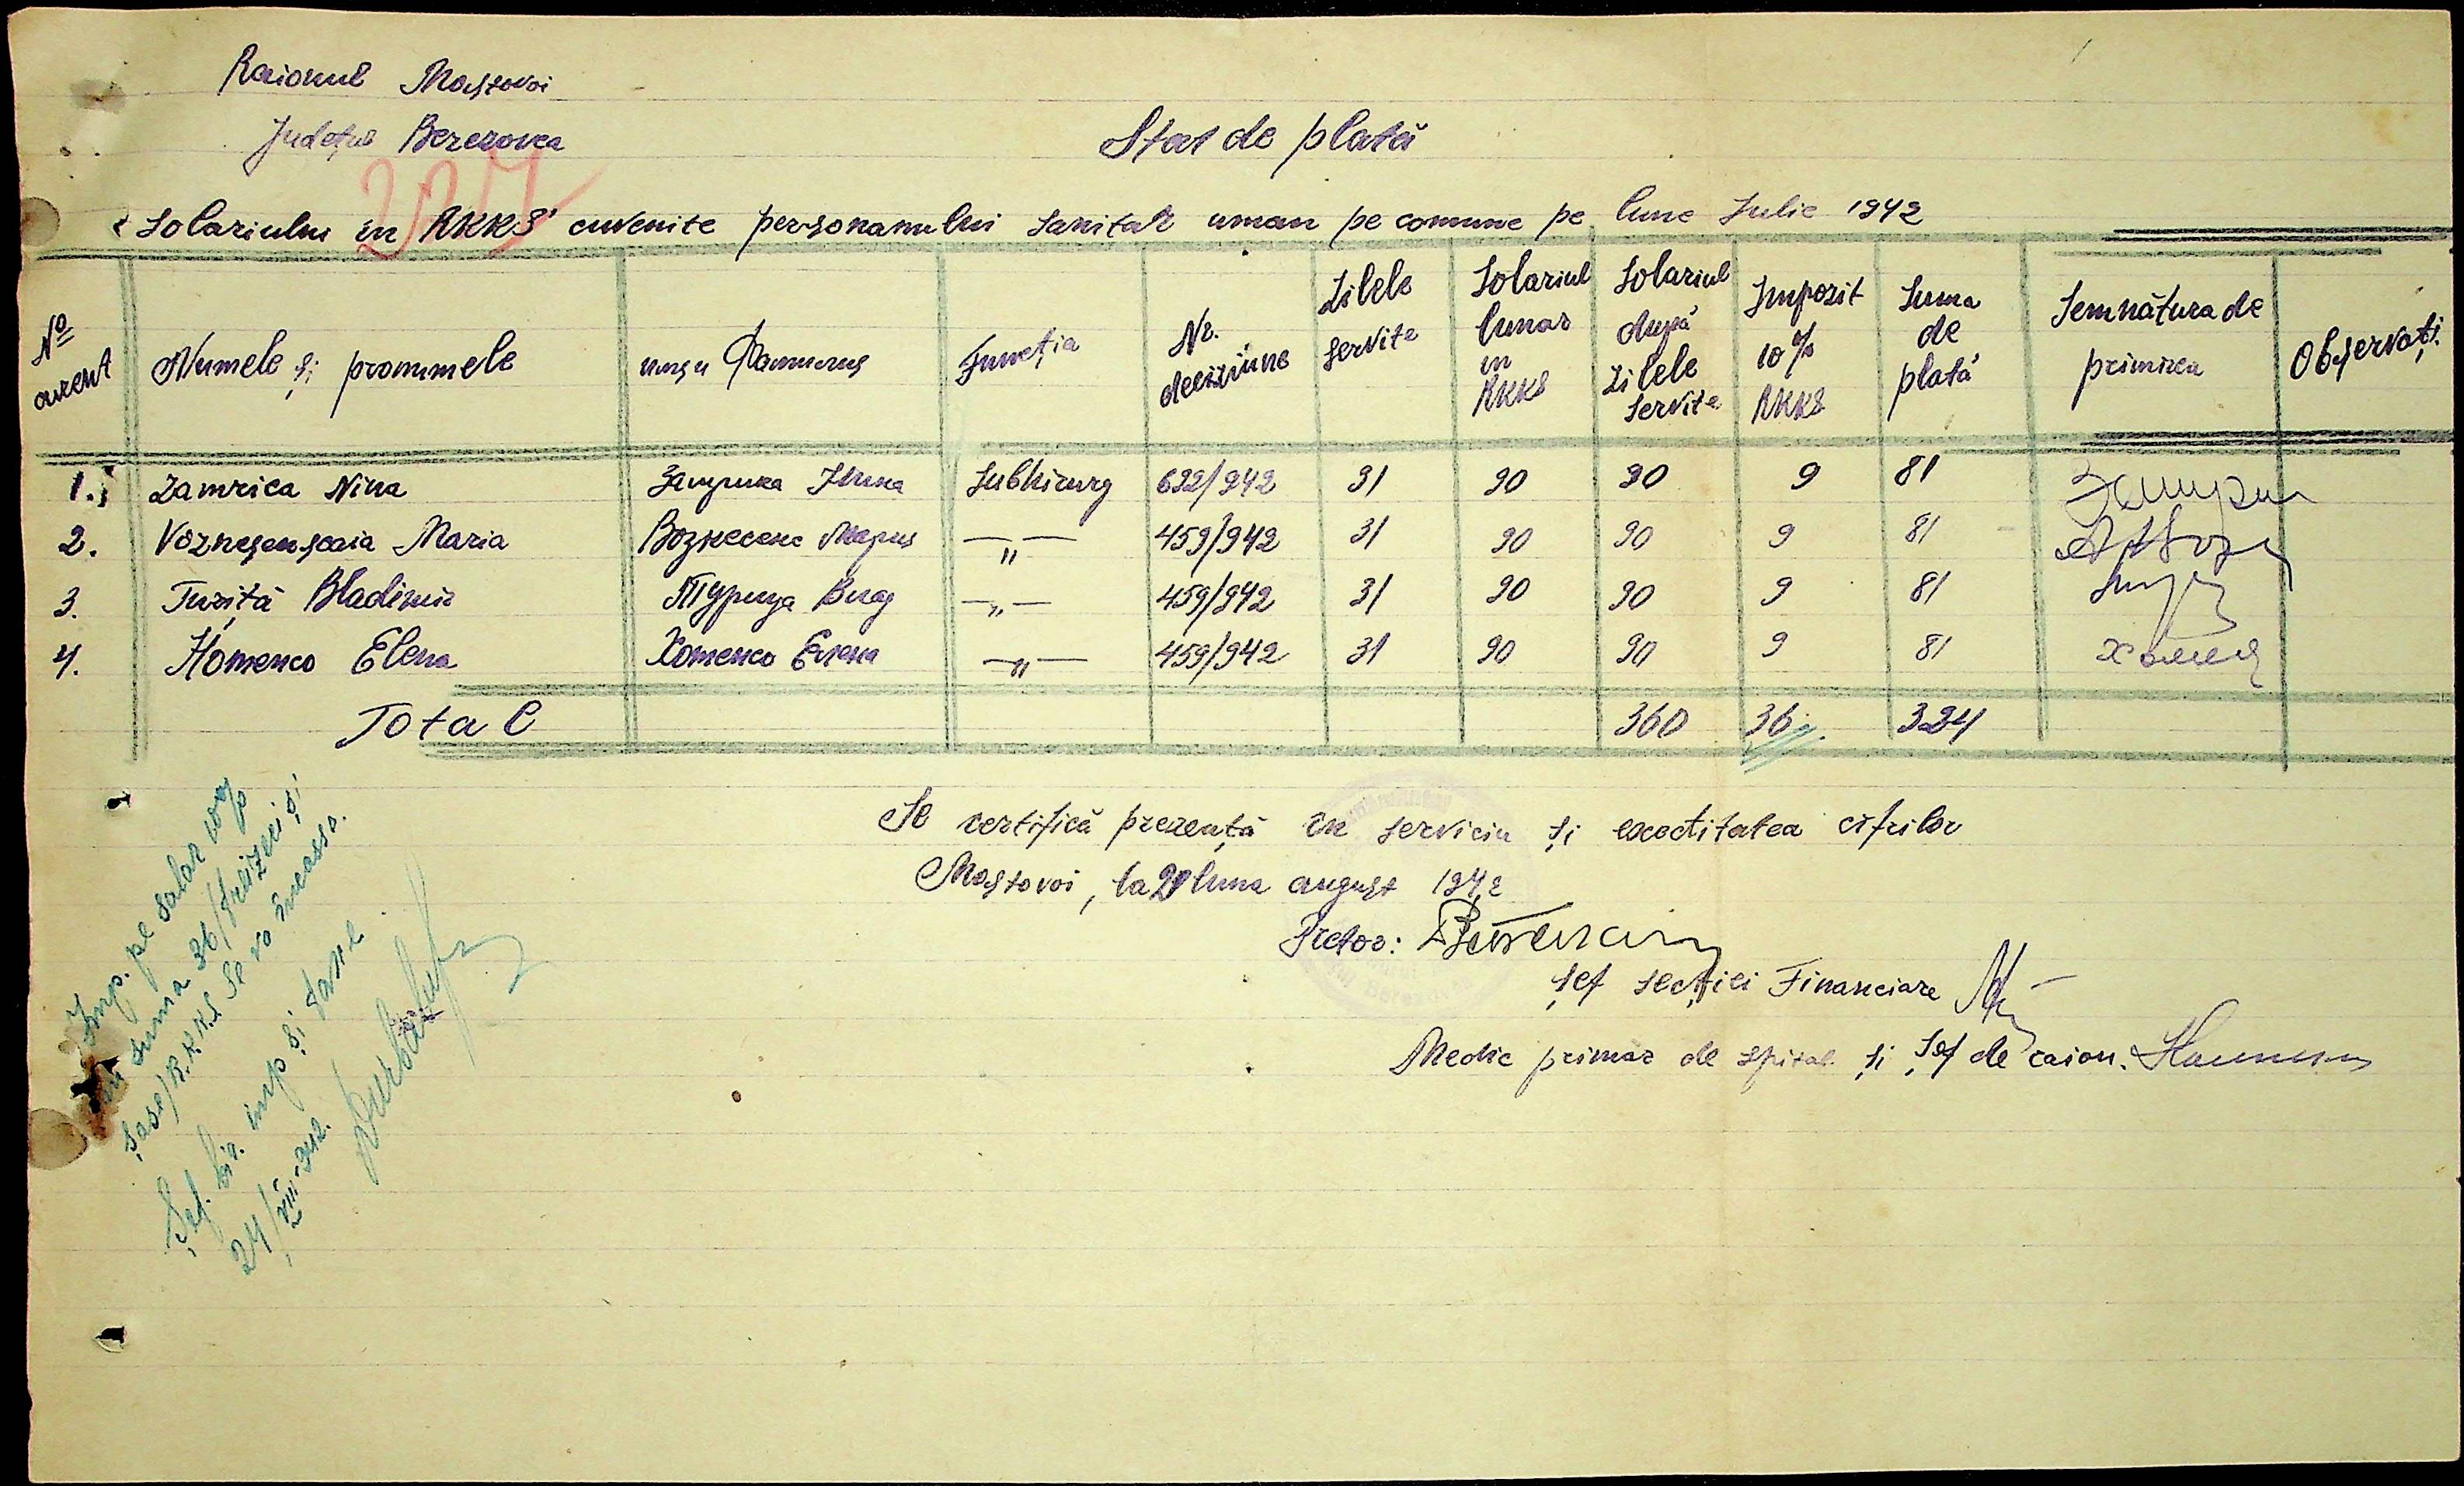 Raionul Mostovoi
Județul Berezovca
227
Stat de plată
a solariului in RKKS cuvenite personamului sanitar uman pe comune pe lune Iulie 1942
Nº curent | Numele și pronumele | имя и Фамилия | Funcția | Nr. decisiune | Zilele servite | Solariul lunar in RKKS | Solariul după zilele servite | Impozit 10% RKKS | Suma de plată | Semnătura de primirea | Observați
1. Zamrica Nina | Замрика Нина | Subhirurg | 622/942 | 31 | 90 | 90 | 9 | 81
2. Voznesenscaia Maria | Вознесенс Мария | —"— | 459/942 | 31 | 90 | 90 | 9 | 81
3. Turiță Bladimir | Турица Влад | —"— | 459/942 | 31 | 90 | 90 | 9 | 81
4. Homenco Elena | Хоменко Елена | —"— | 459/942 | 31 | 90 | 90 | 9 | 81 | Хомен
Total | 360 | 36 | 324
Se certifică prezență în serviciu și exactitatea cifrilor
Mostovoi, la 20 luna august 1942
Pretor:
Șef secției Financiare
Medic primar de spital și șef de raion.
Imp. pe salar 10%
în suma 36/treizeci și
șase/R.K.K.S se va încassa.
Șef. bir. imp și taxe
24/VIII-942.